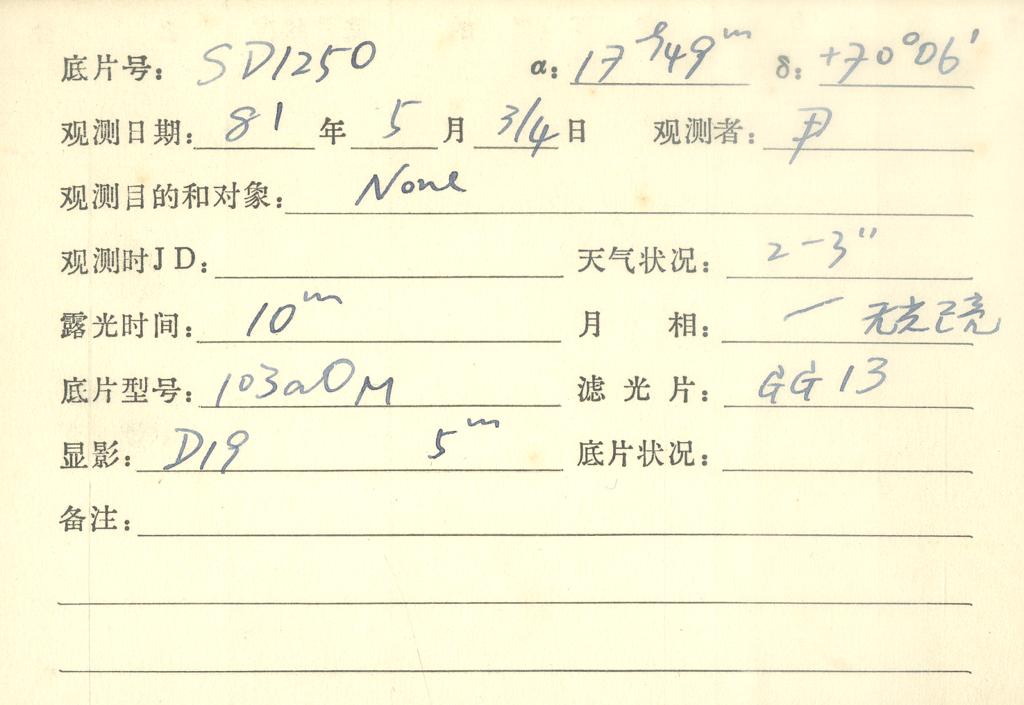 底片号： SD1250 α： 17ʰ49ᵐ δ： +70°06′
观测日期： 81 年 5 月 3/4 日 观测者： 尹
观测目的和对象： None
观测时JD： 天气状况： 2-3″
露光时间： 10ᵐ 月 相： 一
底片型号： 103aO M 滤光片： GG13
显影： D19 5ᵐ 底片状况：
备注：